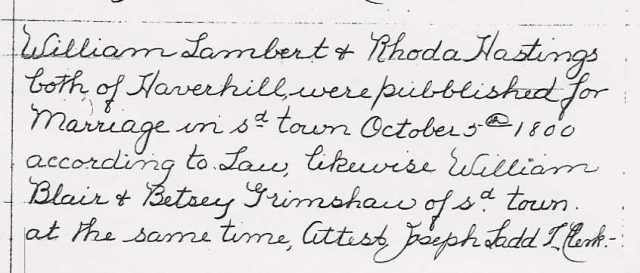 William Lambert & Rhoda Hastings
both of Haverhill, were pubblished for
Marriage in sd town October 5th 1800
according to Law, likewise William
Blair & Betsey Grimshaw of sd town.
at the same time, Attest, Joseph Ladd T. Clerk.-